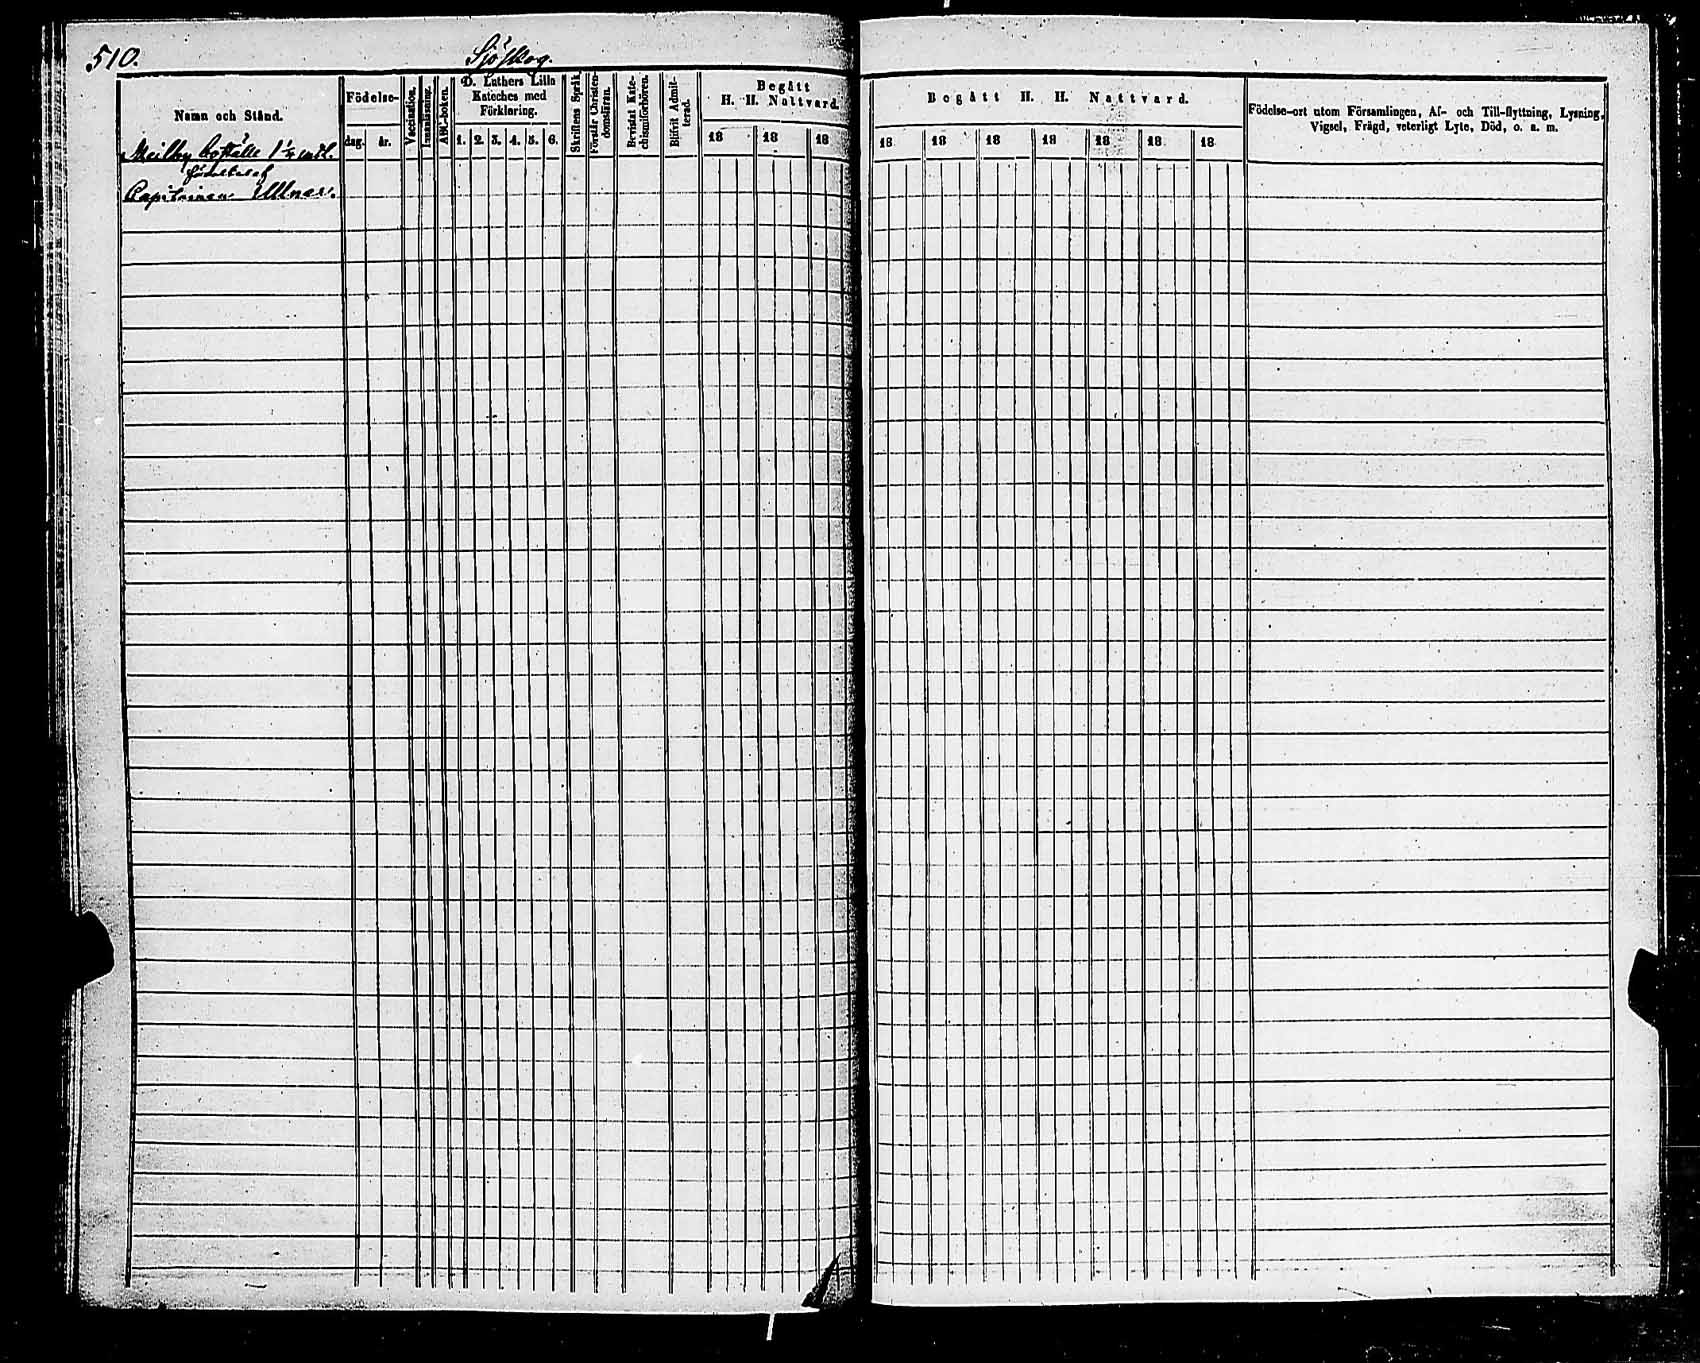 510.
Sjöskog.
Namn och Stånd.
Födelse-
dag. år.
Vaccination.
Innanläsning.
ABC-boken.
D. Luthers Lilla
Kateches med
Förklaring.
1. 2. 3. 4. 5. 6.
Skriftens Språk.
Förstår Christen-
domsläran.
Bevistat Kate-
chismiförhören.
Blifvit Admit-
terad.
Begått
H. H. Nattvard.
18 18 18
Begått H. H. Nattvard.
18 18 18 18 18 18 18
Födelse-ort utom Församlingen, Af- och Till-flyttning, Lysning,
Vigsel, Frägd, veterligt Lyte, Död, o. s. m.
Boställe
Capitainen Ullner.